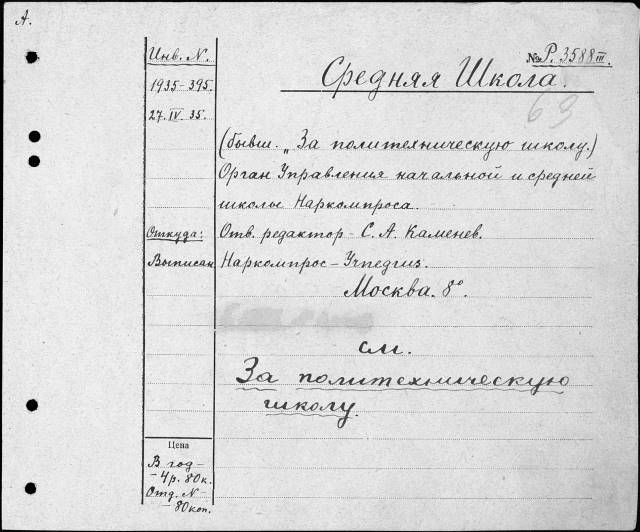 А.
Инв. N.
1935-395.
27.IV.35.
Откуда:
Выписан
Цена
В год-
-4р.80к.
Отд. N-
-80коп.
№ Р. 3588 III.
Средняя Школа.
63
(бывш. „За политехническую школу.)
Орган Управления начальной и средней
школы Наркомпроса.
Отв. редактор - С. А. Каменев.
Наркомпрос - Учпедгиз.
Москва. 8°.
см.
За политехническую
школу.